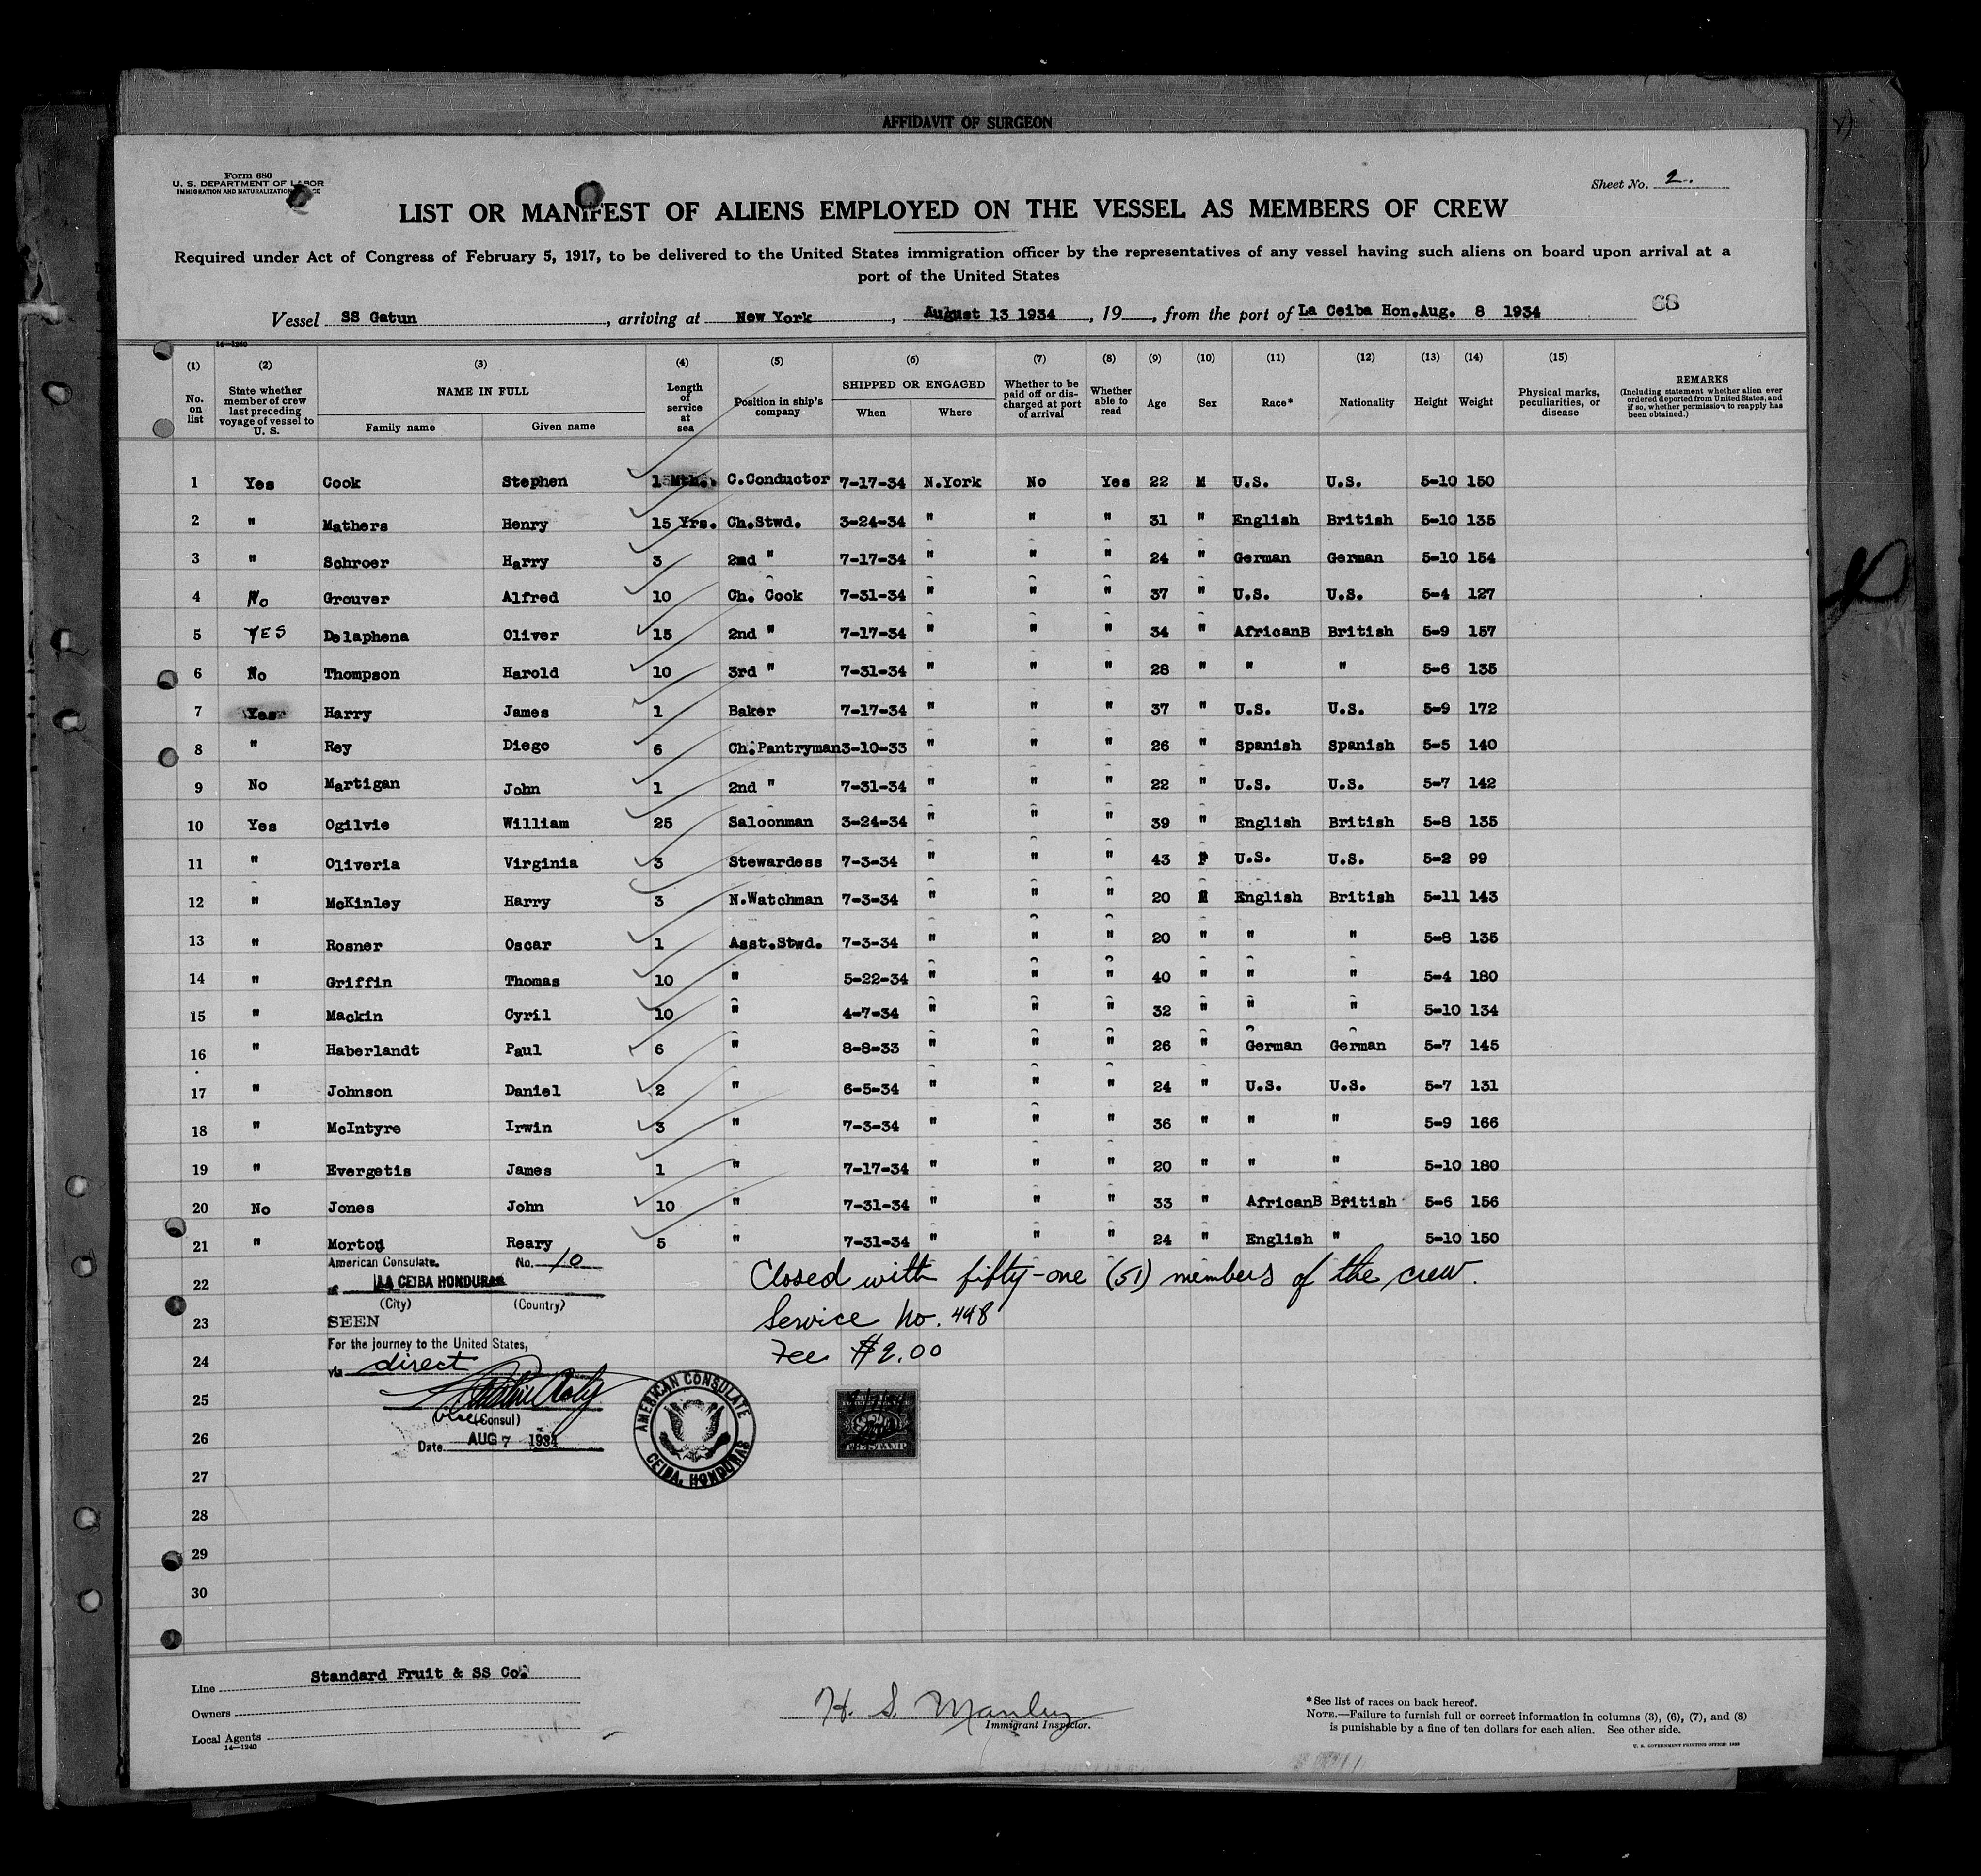 AFFIDAVIT OF SURGEON
Form 680
U. S. DEPARTMENT OF LABOR
IMMIGRATION AND NATURALIZATION
Sheet No. 2.
LIST OR MANIFEST OF ALIENS EMPLOYED ON THE VESSEL AS MEMBERS OF CREW
Required under Act of Congress of February 5, 1917, to be delivered to the United States immigration officer by the representatives of any vessel having such aliens on board upon arrival at a
port of the United States
Vessel SS Gatun, arriving at New York, August 13 1934, 19, from the port of La Ceiba Hon.Aug. 8 1934
68
14-1240
(1) (2) (3) (4) (5) (6) (7) (8) (9) (10) (11) (12) (13) (14) (15)
No. on list
State whether member of crew last preceding voyage of vessel to U. S.
NAME IN FULL
Family name Given name
Length of service at sea
Position in ship's company
SHIPPED OR ENGAGED
When Where
Whether to be paid off or discharged at port of arrival
Whether able to read
Age
Sex
Race*
Nationality
Height
Weight
Physical marks, peculiarities, or disease
REMARKS
(Including statement whether alien ever ordered deported from United States, and if so, whether permission to reapply has been obtained.)
1 Yes Cook Stephen 1 Mth. C.Conductor 7-17-34 N.York No Yes 22 M U.S. U.S. 5-10 150
2 " Mathers Henry 15 Yrs. Ch.Stwd. 3-24-34 " " " 31 " English British 5-10 135
3 " Schroer Harry 3 2nd " 7-17-34 " " " 24 " German German 5-10 154
4 No Grouver Alfred 10 Ch. Cook 7-31-34 " " " 37 " U.S. U.S. 5-4 127
5 YES Delaphena Oliver 15 2nd " 7-17-34 " " " 34 " AfricanB British 5-9 157
6 No Thompson Harold 10 3rd " 7-31-34 " " " 28 " " " 5-6 135
7 Yes Harry James 1 Baker 7-17-34 " " " 37 " U.S. U.S. 5-9 172
8 " Rey Diego 6 Ch.Pantryman 3-10-33 " " " 26 " Spanish Spanish 5-5 140
9 No Martigan John 1 2nd " 7-31-34 " " " 22 " U.S. U.S. 5-7 142
10 Yes Ogilvie William 25 Saloonman 3-24-34 " " " 39 " English British 5-8 135
11 " Oliveria Virginia 3 Stewardess 7-3-34 " " " 43 F U.S. U.S. 5-2 99
12 " McKinley Harry 3 N.Watchman 7-3-34 " " " 20 M English British 5-11 143
13 " Rosner Oscar 1 Asst.Stwd. 7-3-34 " " " 20 " " " 5-8 135
14 " Griffin Thomas 10 " 5-22-34 " " " 40 " " " 5-4 180
15 " Mackin Cyril 10 " 4-7-34 " " " 32 " " " 5-10 134
16 " Haberlandt Paul 6 " 8-8-33 " " " 26 " German German 5-7 145
17 " Johnson Daniel 2 " 6-5-34 " " " 24 " U.S. U.S. 5-7 131
18 " McIntyre Irwin 3 " 7-3-34 " " " 36 " " " 5-9 166
19 " Evergetis James 1 " 7-17-34 " " " 20 " " " 5-10 180
20 No Jones John 10 " 7-31-34 " " " 33 " AfricanB British 5-6 156
21 " Morton Reary 5 " 7-31-34 " " " 24 " English " 5-10 150
American Consulate. No. 10
22 at LA CEIBA HONDURAS Closed with fifty-one (51) members of the crew.
(City) (Country)
23 SEEN Service No. 498
For the journey to the United States,
24 via direct Fee $2.00
25
Vice (Consul)
26 Date AUG 7 1934
AMERICAN CONSULATE CEIBA, HONDURAS
FEE STAMP
27
28
29
30
Line Standard Fruit & SS Co.
Owners
Local Agents
14-1240
H. S. Manley
Immigrant Inspector.
*See list of races on back hereof.
NOTE.—Failure to furnish full or correct information in columns (3), (6), (7), and (8)
is punishable by a fine of ten dollars for each alien. See other side.
U. S. GOVERNMENT PRINTING OFFICE: 1933